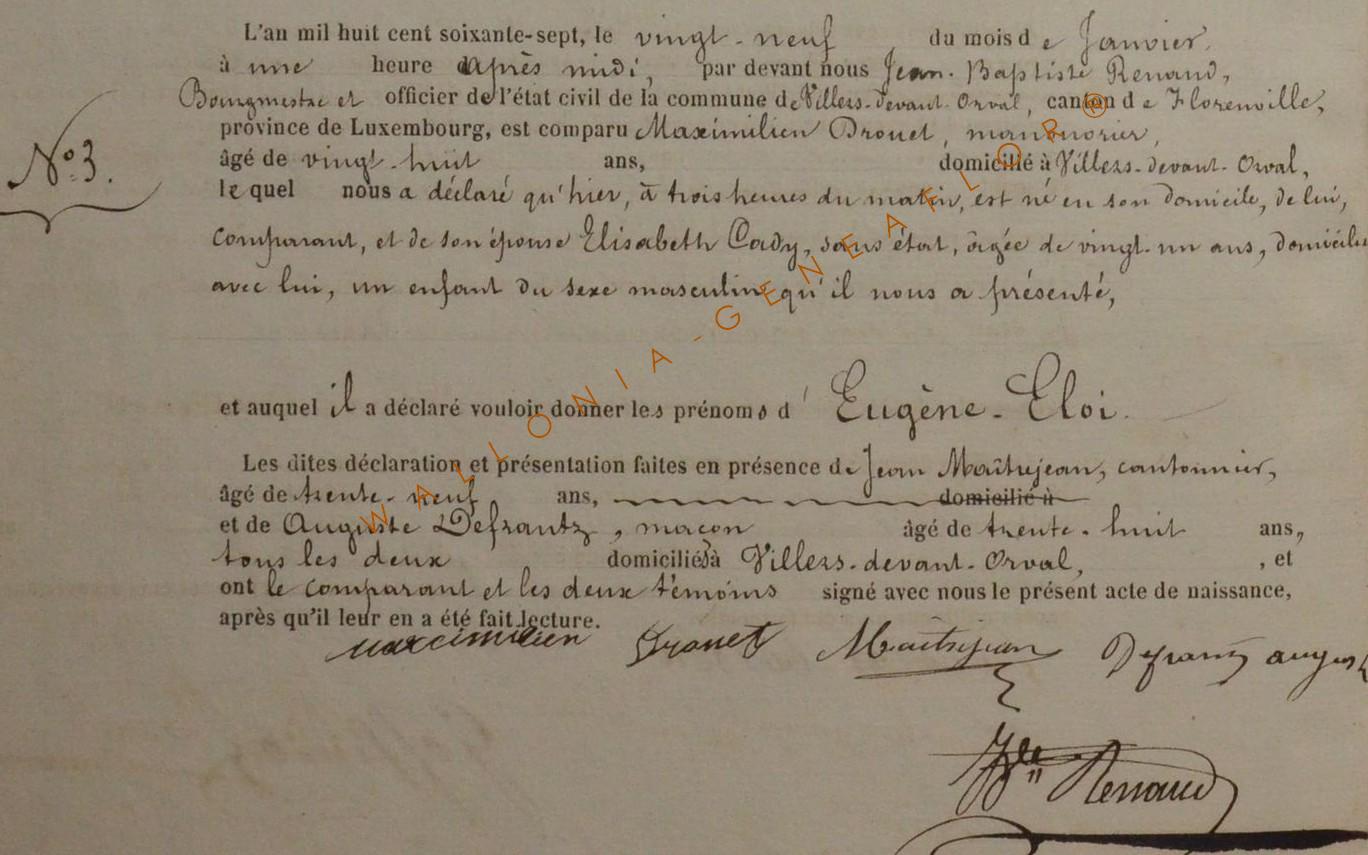 L'an mil huit cent soixante-sept, le vingt-neuf du mois de Janvier.
à une heure après midi, par devant nous Jean-Baptiste Renaud,
Bourgmestre et officier de l'état civil de la commune de Villers-devant-Orval, canton de Florenville,
N° 3.
province de Luxembourg, est comparu Maximilien Drouet, manouvrier,
âgé de vingt-huit ans, domicilié à Villers-devant-Orval,
lequel nous a déclaré qu'hier, à trois heures du matin, est né en son domicile, de lui,
comparant, et de son épouse Elisabeth Cady, sans état, âgée de vingt-un ans, domiciliée
avec lui, un enfant du sexe masculin qu'il nous a présenté,
et auquel il a déclaré vouloir donner les prénoms d'Eugène-Eloi.
Les dites déclaration et présentation faites en présence de Jean Maîtrejean, cantonnier,
âgé de trente-neuf ans, domicilié à
et de Auguste Defrantz, maçon âgé de trente-huit ans,
tous les deux domiciliés à Villers-devant-Orval, , et
ont le comparant et les deux témoins signé avec nous le présent acte de naissance,
après qu'il leur en a été fait lecture.
maximilien Drouet Maîtrejean Defrantz august
JBte Renaud
WALLONIA-GENEAFLOR®